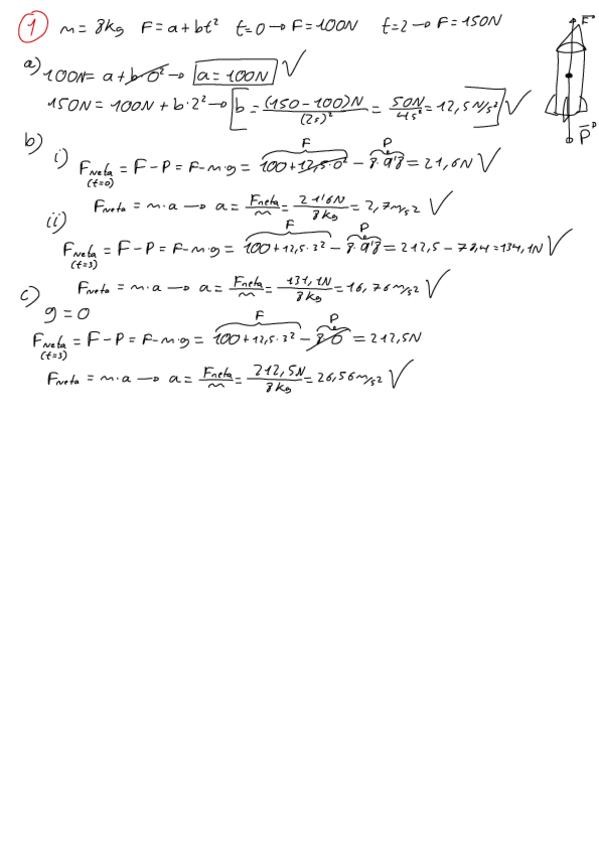 1 m = 8kg F = a + bt² t=0 → F=100N t=2 → F=150N
a) 100N = a + b·0² → a = 100N √
150N = 100N + b·2² → b = (150-100)N/(2s)² = 50N/4s² = 12,5 N/s² √
F
P̄
b)
F P
i) Fneta (t=0) = F - P = F - m·g = 100 + 12,5·0² - 8·9'8 = 21,6N √
Fneta = m·a → a = Fneta/m = 21'6N/8kg = 2,7m/s2 √
F P
ii) Fneta (t=3) = F - P = F - m·g = 100 + 12,5·3² - 8·9'8 = 212,5 - 78,4 = 134,1N √
Fneta = m·a → a = Fneta/m = 134,1N/8kg = 16,76m/s2 √
c) g = 0
F P
Fneta (t=3) = F - P = F - m·g = 100 + 12,5·3² - 8·0 = 212,5N
Fneta = m·a → a = Fneta/m = 212,5N/8kg = 26,56m/s2 √